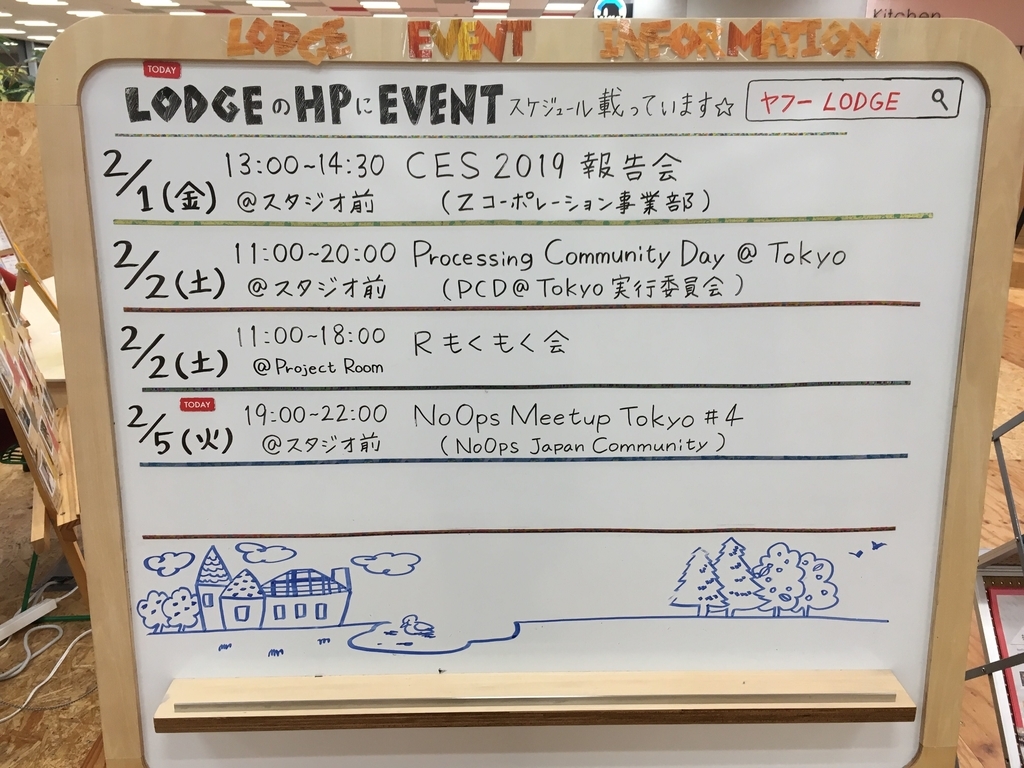 kitchen
LODGE EVENT INFORMATION
TODAY
LODGEのHPにEVENTスケジュール載っています☆ ヤフー LODGE
2/1(金) 13:00~14:30 CES 2019 報告会
@スタジオ前 (Zコーポレーション事業部)
2/2(土) 11:00~20:00 Processing Community Day @ Tokyo
@スタジオ前 (PCD@Tokyo実行委員会)
2/2(土) 11:00~18:00 Rもくもく会
@Project Room
TODAY
2/5(火) 19:00~22:00 NoOps Meetup Tokyo #4
@スタジオ前 (NoOps Japan Community)